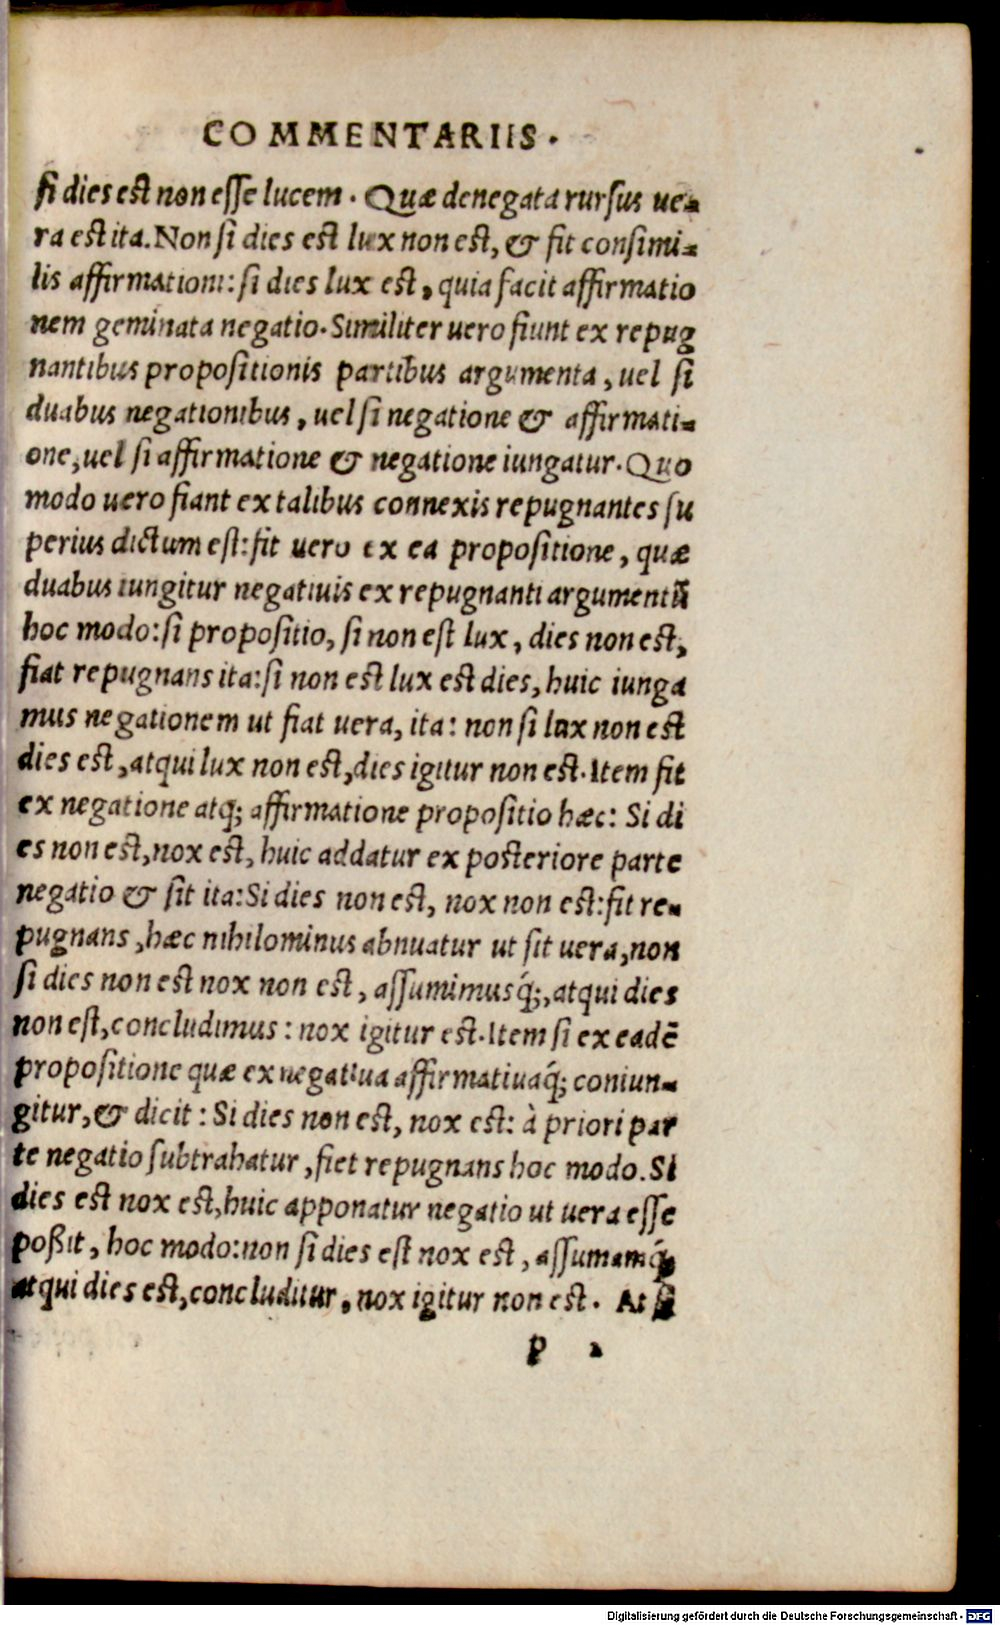 COMMENTARIIS.
si dies est non esse lucem. Quæ denegata rursus ue-
ra est ita. Non si dies est lux non est, & fit consimi-
lis affirmationi: si dies lux est, quia facit affirmatio
nem geminata negatio. Similiter uero fiunt ex repug
nantibus propositionis partibus argumenta, uel si
duabus negationibus, uel si negatione & affirmati-
one, uel si affirmatione & negatione iungatur. Quo
modo uero fiant ex talibus connexis repugnantes su
perius dictum est: fit uero ex ea propositione, quæ
duabus iungitur negatiuis ex repugnanti argumentũ
hoc modo: si propositio, si non est lux, dies non est,
fiat repugnans ita: si non est lux est dies, huic iunga
mus negationem ut fiat uera, ita: non si lux non est
dies est, atqui lux non est, dies igitur non est. Item fit
ex negatione atq; affirmatione propositio hæc: Si di
es non est, nox est, huic addatur ex posteriore parte
negatio & sit ita: Si dies non est, nox non est: fit re-
pugnans, hæc nihilominus abnuatur ut sit uera, non
si dies non est nox non est, assumimusq́;, atqui dies
non est, concludimus: nox igitur est. Item si ex eadē
propositione quæ ex negatiua affirmatiuaq́; coniun-
gitur, & dicit: Si dies non est, nox est: à priori par
te negatio subtrahatur, fiet repugnans hoc modo. Si
dies est nox est, huic apponatur negatio ut uera esse
poßit, hoc modo: non si dies est nox est, assumamq́;
atqui dies est, concluditur, nox igitur non est. At si
P
Digitalisierung gefördert durch die Deutsche Forschungsgemeinschaft - DFG